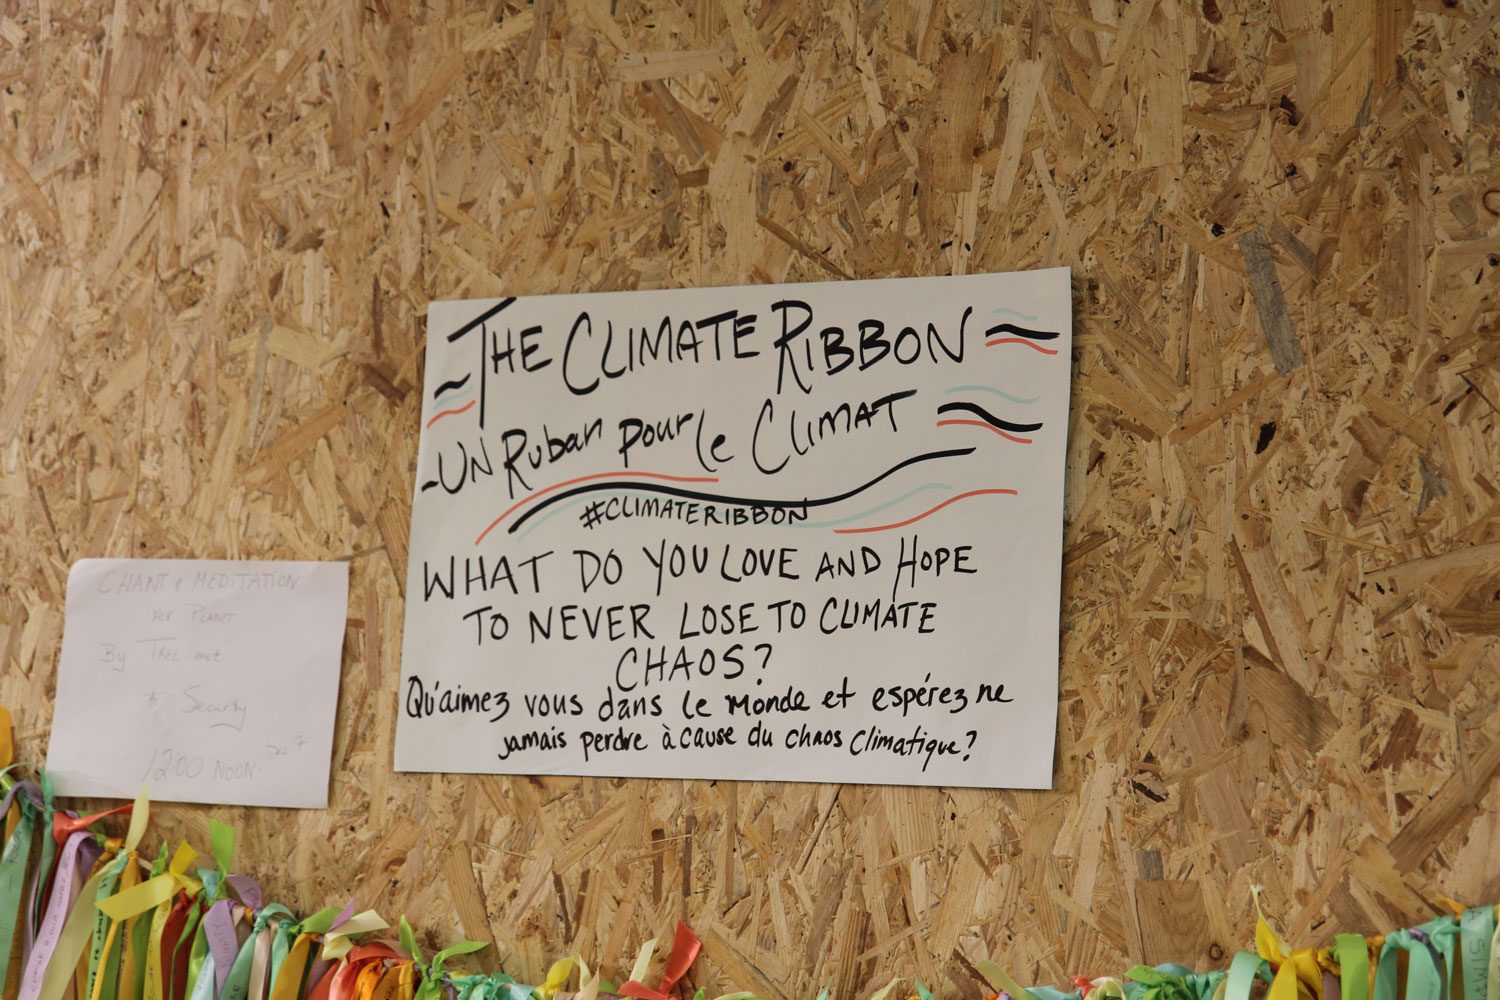 THE CLIMATE RIBBON
-UN Ruban pour le CLIMAT
#CLIMATERIBBON
WHAT DO YOU LOVE AND HOPE
TO NEVER LOSE TO CLIMATE
CHAOS?
Qu'aimez vous dans le monde et espérez ne
jamais perdre à cause du chaos climatique?
CHANT & MEDITATION
FOR PLANET
By TREE
Security
12:00 NOON- Dec 7